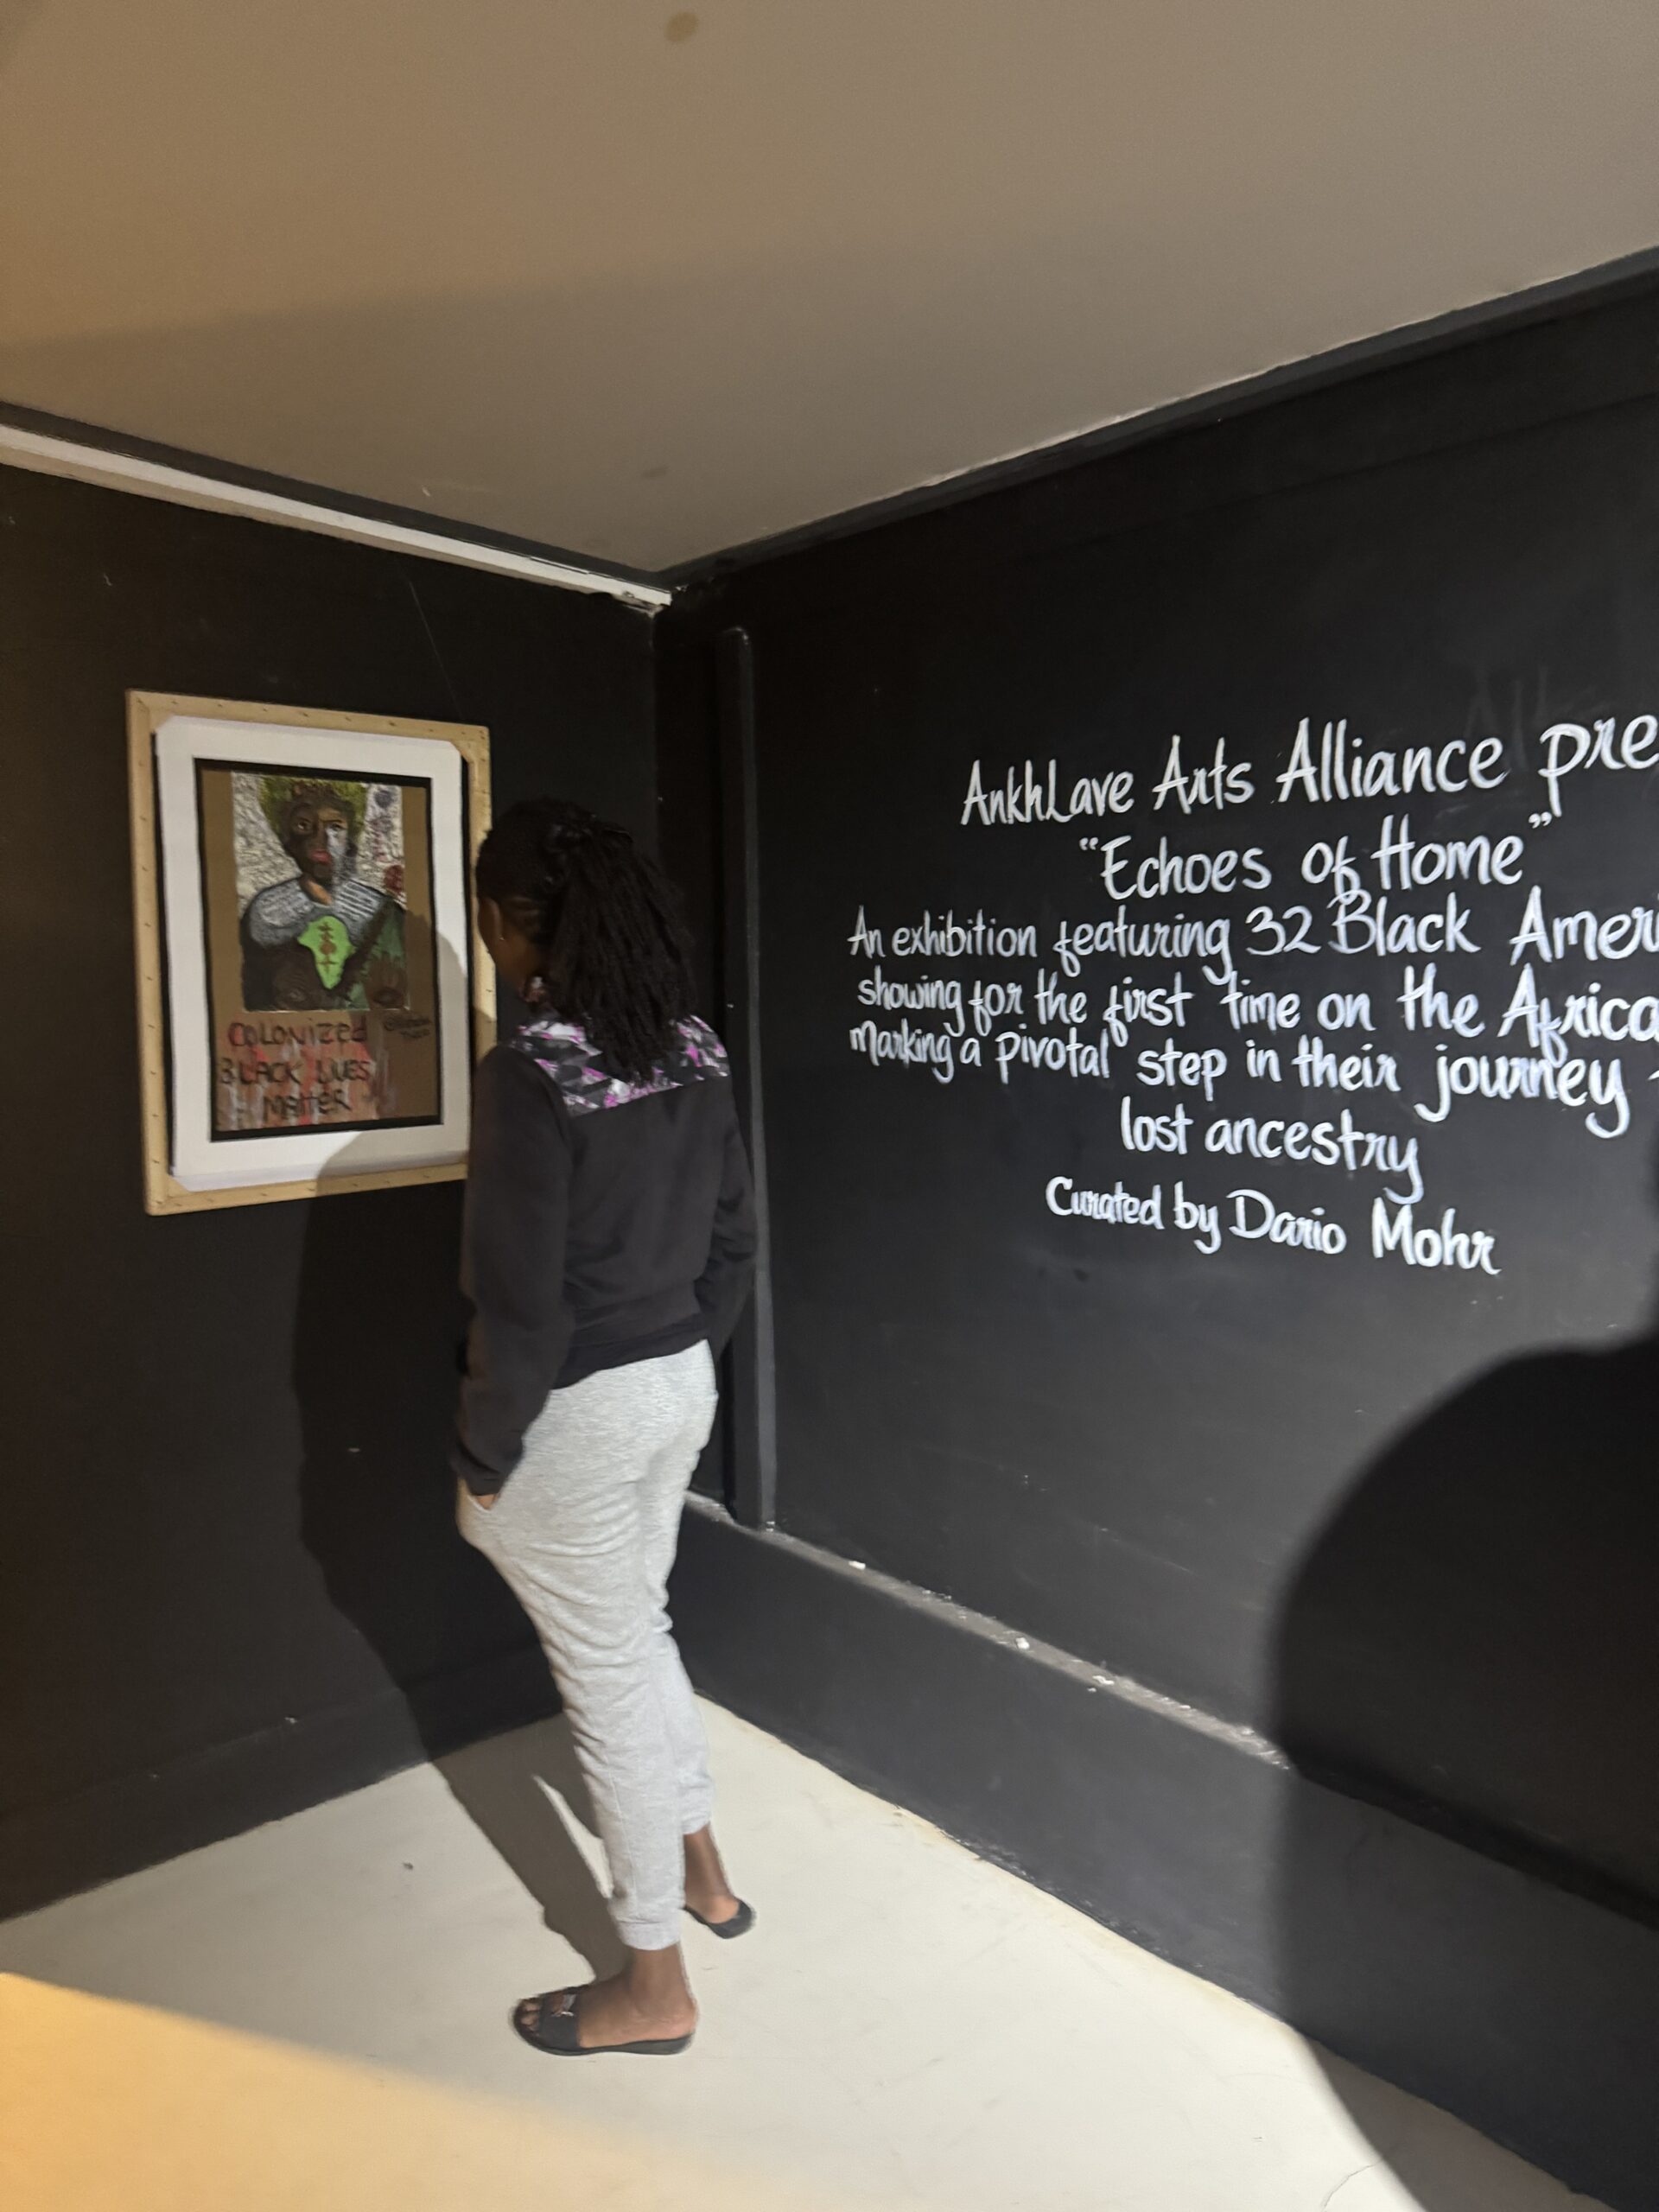 COLONIZED
BLACK LIVES
MATTER
AnkhLave Arts Alliance pre
"Echoes of Home"
An exhibition featuring 32 Black Ameri
showing for the first time on the Africa
Marking a pivotal step in their journey
lost ancestry
Curated by Dario Mohr